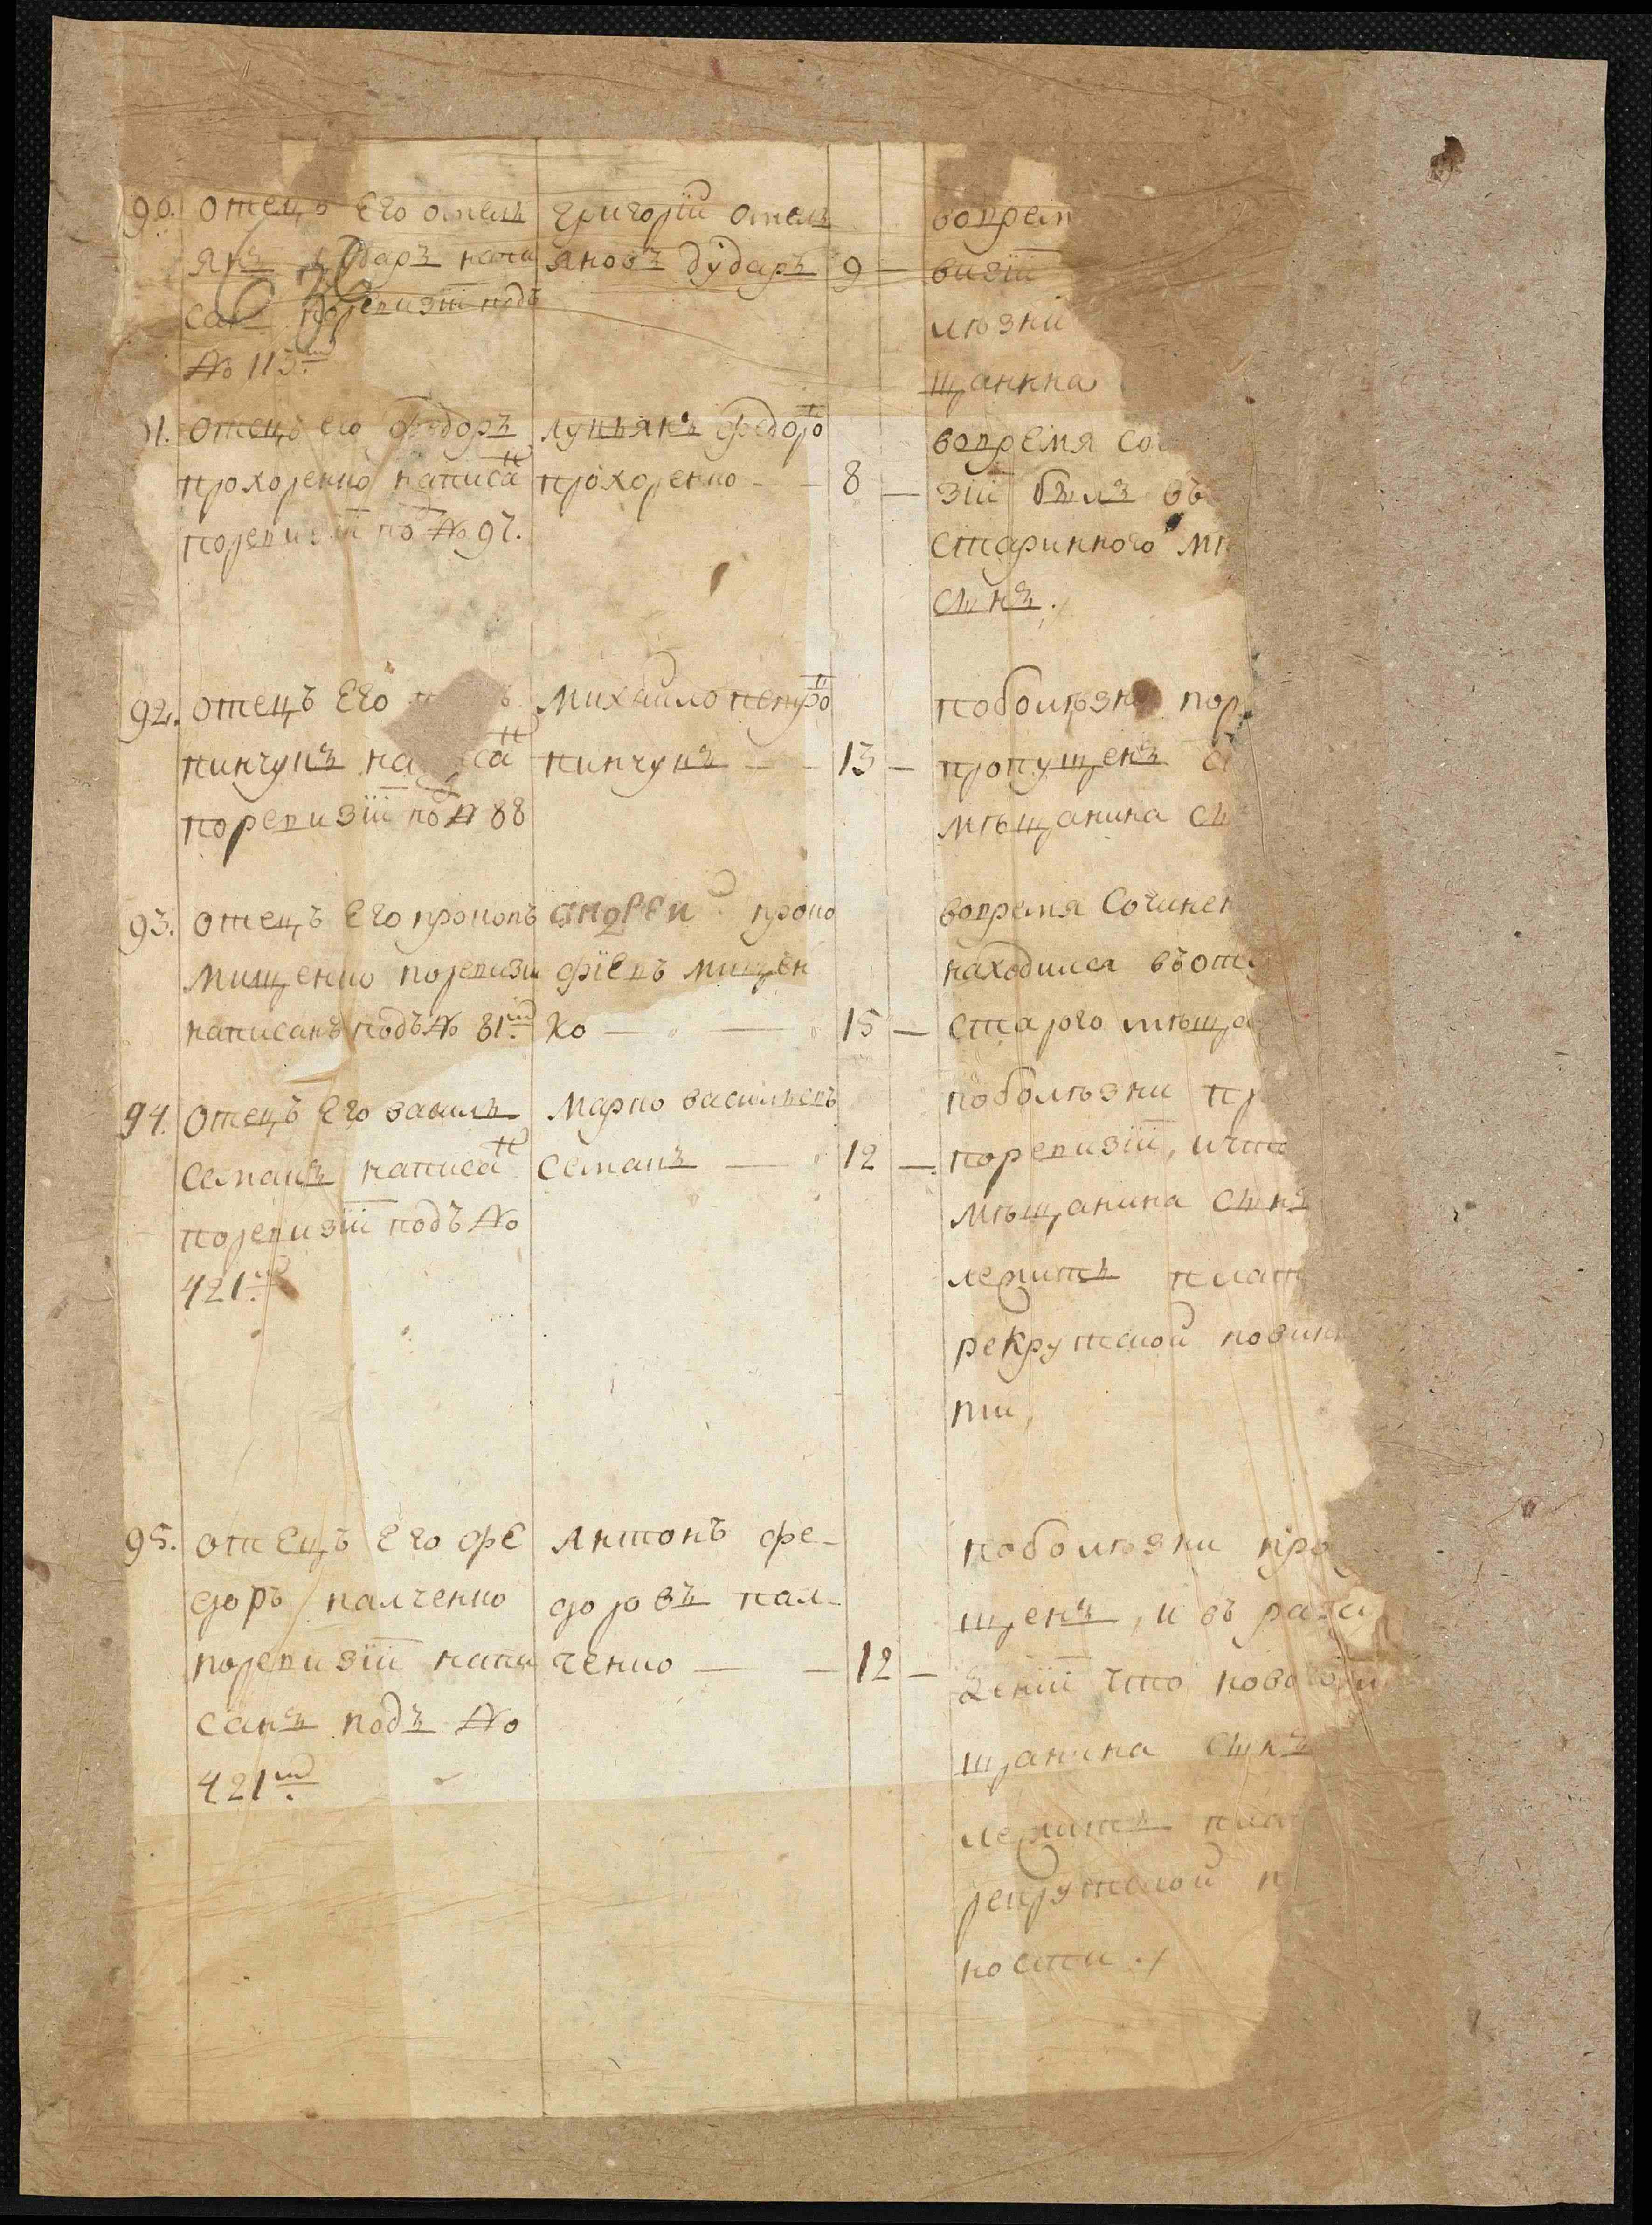 90. отецъ Его омель
янъ дударъ напи
санъ поревизiи подъ
№ 115й
григорiй омель
яновъ дударъ 9 —
вовремя
визiи
лѣзни
щанина
91. отецъ его федоръ
прохоренко написан
поревизiи по № 97.
лукьянъ федоро
прохоренко — 8 —
вовремя со
зiи былъ въ
старинного мѣ
сынъ.
92. отецъ Его
пинчукъ написан
поревизiи под № 88
михайло петров
пинчукъ — 13 —
поболѣзни пор
пропущенъ
мѣщанина сы
93. отецъ Его прокопъ
мищенко поревизи
написанъ подъ № 81й
андрей проко
фiевъ мищен
ко — — 15 —
вовремя сочинен
находился въ отл
старого мѣща
94. отецъ Его василь
семакъ написан
поревизiи подъ №
421й
марко васильевъ
семакъ — 12 —
поболѣзни пр
поревизiи, ичто
мѣщанина сынъ
лежитъ плат
рекрутской повин
сти,
95. отецъ Его фе
доръ палченко
поревизiи напи
санъ подъ №
421й
Антонъ фе-
доровъ пал-
ченко — — 12 —
поболѣзни про
щенъ, и въ
что
щанина сынъ
лежитъ плат
рекрутской п
ности ./